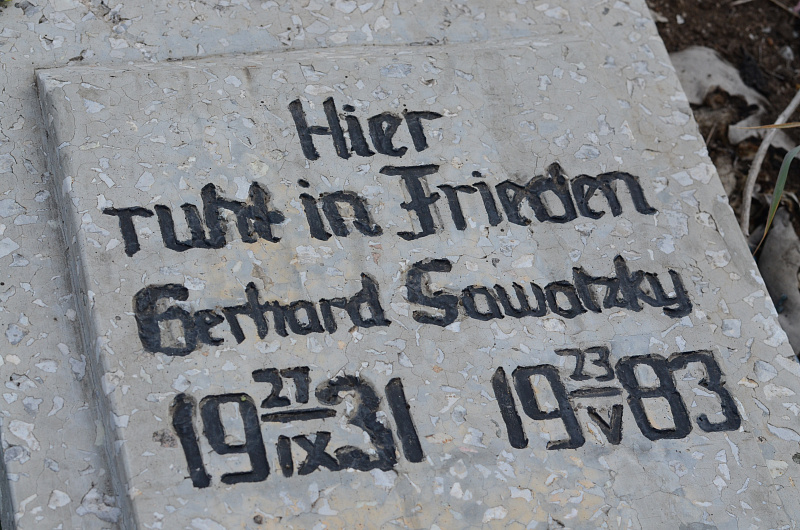 Hier
ruht in Frieden
Gerhard Sawatzky
19 27/IX 31 19 23/V 83